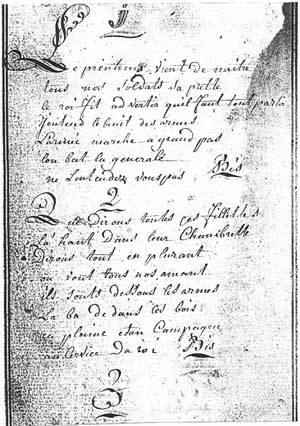 1
Le printems vient de naitre
tous nos soldats sa prette
le roi fit advertir quil faut tout partir
Jentend le bruit des armes
Larmée marche a grand pas
lon bat la generale
ne lentendez vous pas Bis
2
Que dirons toutes ces fillettes
la haut dans leur Chambrette
Dirons tout en pleurant
ou vont tous nos amant
ils sonts dessous les armes
La ba dedans les bois
pleine Campagne
au service du roi Bis
3